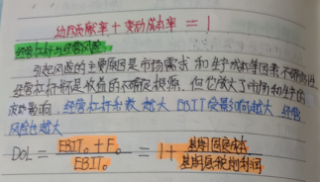 边际贡献率 + 变动成本率 = 1
经营杠杆与经营风险
引起风险的主要原因是市场需求和生产成本等因素不确定性
经营杠杆不是收益的不确定根源,但它放大了市场和生产的
波动影响,经营杠杆系数越大 EBIT变量幅度越大 经营
风险也越大
DOL = EBIT₀ + F₀ / EBIT₀ = 1 + 基期固定成本 / 基期息税前利润